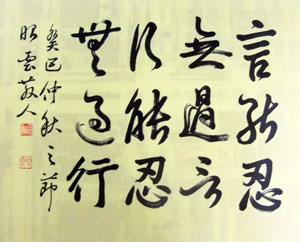 言能忍
無過言
行能忍
無過行
癸巳仲秋之節
昭雲散人